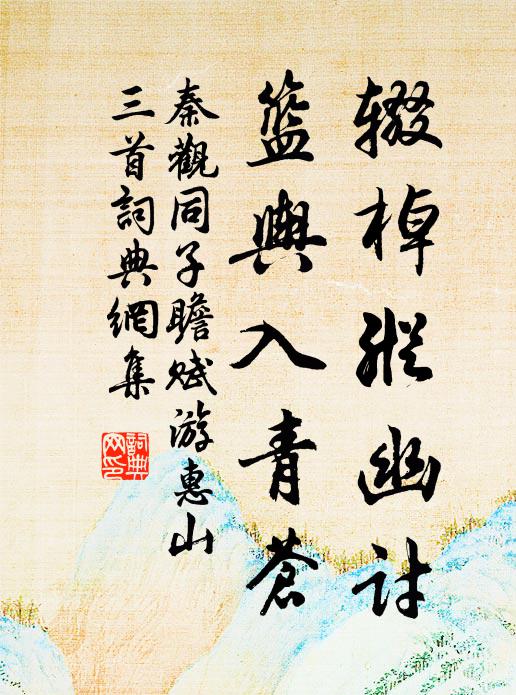 辍棹縱幽討
籃輿入青蒼
秦觀同子瞻賦游惠山
三首詞典網集
詞典
网印